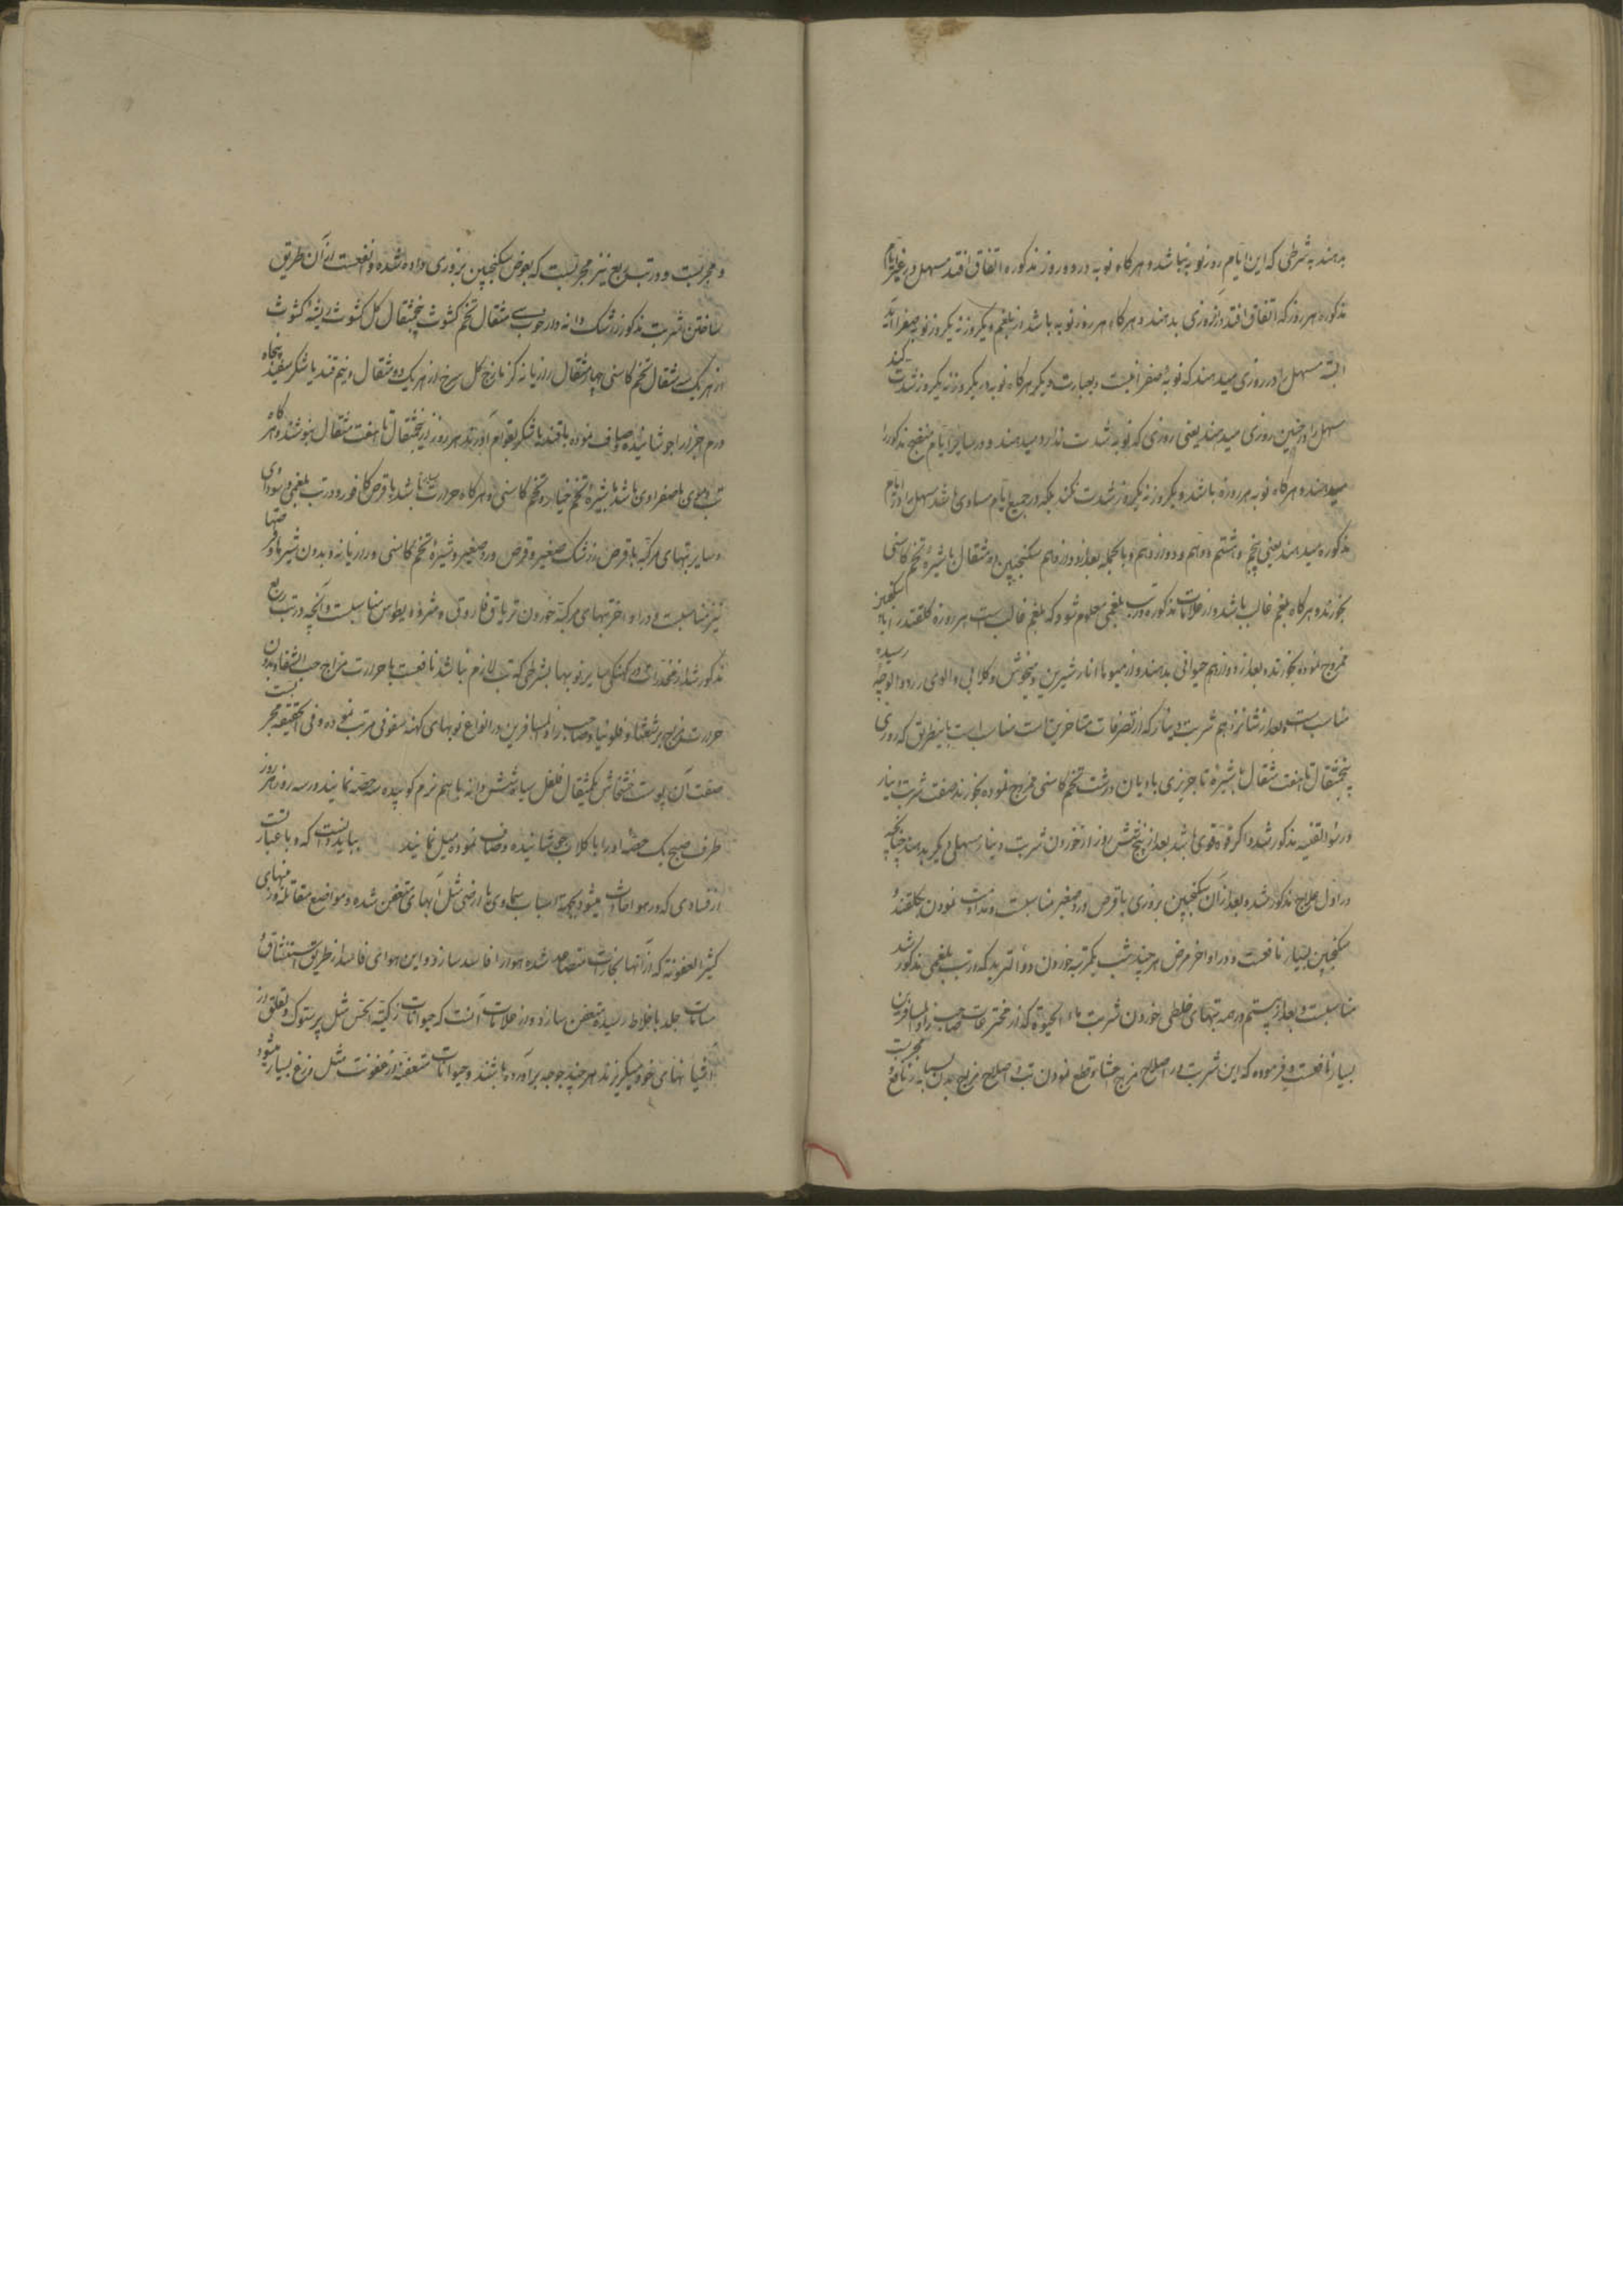 بدهند به شرطی که این ایام روز نوبه نباشد و هر کاه نوبه در دو روز مذکوره اتفاق افتد مسهل در غیر ایام
مذکوره هر روز که اتفاق افتد در روزی بدهند و هر کاه هر روز نوبه باشد از بلغم و یکروز نه یکروز نوبه صفرا آید
البته مسهل را در روزی میدهند که نوبه صفرا نیست و بعبارت دیکر هر کاه نوبه در یکروز نه یکروز شدت کند
مسهل را در چنین روزی میدهند یعنی روزی که نوبه شدت ندارد میدهند و در سایر ایام منضج مذکور را
میدهند و هر کاه نوبه هر روزه باشد و یکروز نه یکروز شدت نکند بلکه در جمیع ایام مساوی باشد مسهل را در ایام
مذکوره میدهند یعنی پنجم و هشتم و دهم و دوازدهم و بالجمله بعد از دوازدهم سکنجبین ده مثقال با شیره تخم کاسنی
بخورند و هر کاه بلغم غالب باشد و از علامات مذکوره در تب بلغمی معلوم شود که بلغم غالب است هر روزه کلقند را با سکنجبین
ممزوج نموده بخورند و بعد از دوازدهم حیوانی بدهند و از میوها انار شیرین و میخوش و کلابی و الوی زرد و الوچه رسیده
مناسب است و بعد از شانزدهم شربت دینار که از تصرفات متاخرین است مناسب است باینطریق که روزی
پنجمثقال تا هفت مثقال با شیره تاجریزی بادیان درشت تخم کاسنی ممزوج نموده بخورند صفت شربت دینار
در سوء القنیه مذکور شد و اکر قوه قوی باشد بعد از پنج شش روز از خوردن شربت دینار مسهلی دیکر بدهند چنانچه
در اول علاج مذکور شد و بعد از آن سکنجبین بزوری با قرص ورد صغیر مناسبست و مداومت نمودن بکلقند و
سکنجبین بسیار نافعست و در اواخر مرض هر چند شب یکمرتبه خوردن دواء التربد که در تب بلغمی مذکور شد
مناسبست و بعد از بیستم در همه تبهای خلطی خوردن شربت ماء الحیوة که از مخترعات صاحب زاد المسافرین
بسیار نافعست و فرموده که این شربت در اصلاح مزاج احشا و قطع نمودن تب و اصلاح مزاج بدن بسیار نافع و مجربت
و مجربست و در تب ربع نیز مجربست که بعوض سکنجبین بزوری داده شده و انفعست از آن طریق
ساختن شربت مذکور زرشک دانه دار خوب سی مثقال تخم کشوث پنجمثقال کل کشوث ریشه کشوث
از هر یک سه مثقال تخم کاسنی چهار مثقال رازیانه کزمازج کل سرخ از هر یک دو مثقال و نیم قند یا شکر سفید پنجاه
درم اجزا را جوشانیده و صاف نموده با قند یا شکر بقوام آورند هر روز از پنجمثقال تا هفت مثقال بنوشند و اکر
تب دموی یا صفراوی باشد با شیره تخم خیار و تخم کاسنی و هر کاه حرارت بسیار باشد با قرص کافور و در تب بلغمی و سوداوی
و سایر تبهای مرکبه با قرص زرشک صغیر و قرص ورد صغیر و شیره تخم کاسنی و رازیانه و بدون شیرها و قرصها
نیز مناسبست و در اواخر تبهای مرکبه خوردن تریاق فاروق و مثرودیطوس مناسبست و آنچه در تب ربع
مذکور شد از مخدرات در کهنکی سایر نوبها بشرطی که تب لازم نباشد نافعست با حرارت مزاج حب الشفا و بدون
حرارت مزاج برشعثا و فلونیا و صاحب زاد المسافرین در انواع نوبهای کهنه سفوفی مرتب نموده و فی الحقیقه مجربست
صفت آن پوست خشخاش یکمثقال فلفل سیاه شش دانه با هم نرم کوبیده سه حصه نمایند و در سه روز هر روز
طرف صبح یک حصه او را با کلاب جوشانیده و صاف نموده میل نمایند بباید دانست که وبا عبارتست
از فسادی که در هوا حادث میشود بجهة اسباب سماوی یا ارضی مثل آبهای متعفن شده و مواضع مقاتله و زمینهای
کثیر العفونه که از آنها بخارات متصاعد شده هوا را فاسد سازد و این هوای فاسد از طریق استنشاق و
مسامات جلد باخلاط رسیده متعفن سازد و از علامات آنست که حیوانات زکیة الحس مثل پرستوک و لقلق از
آشیانهای خود میکریزند هر چند جوجه برآورده باشند و حیوانات متعفنه از عفونت مثل وزغ بسیار میشود